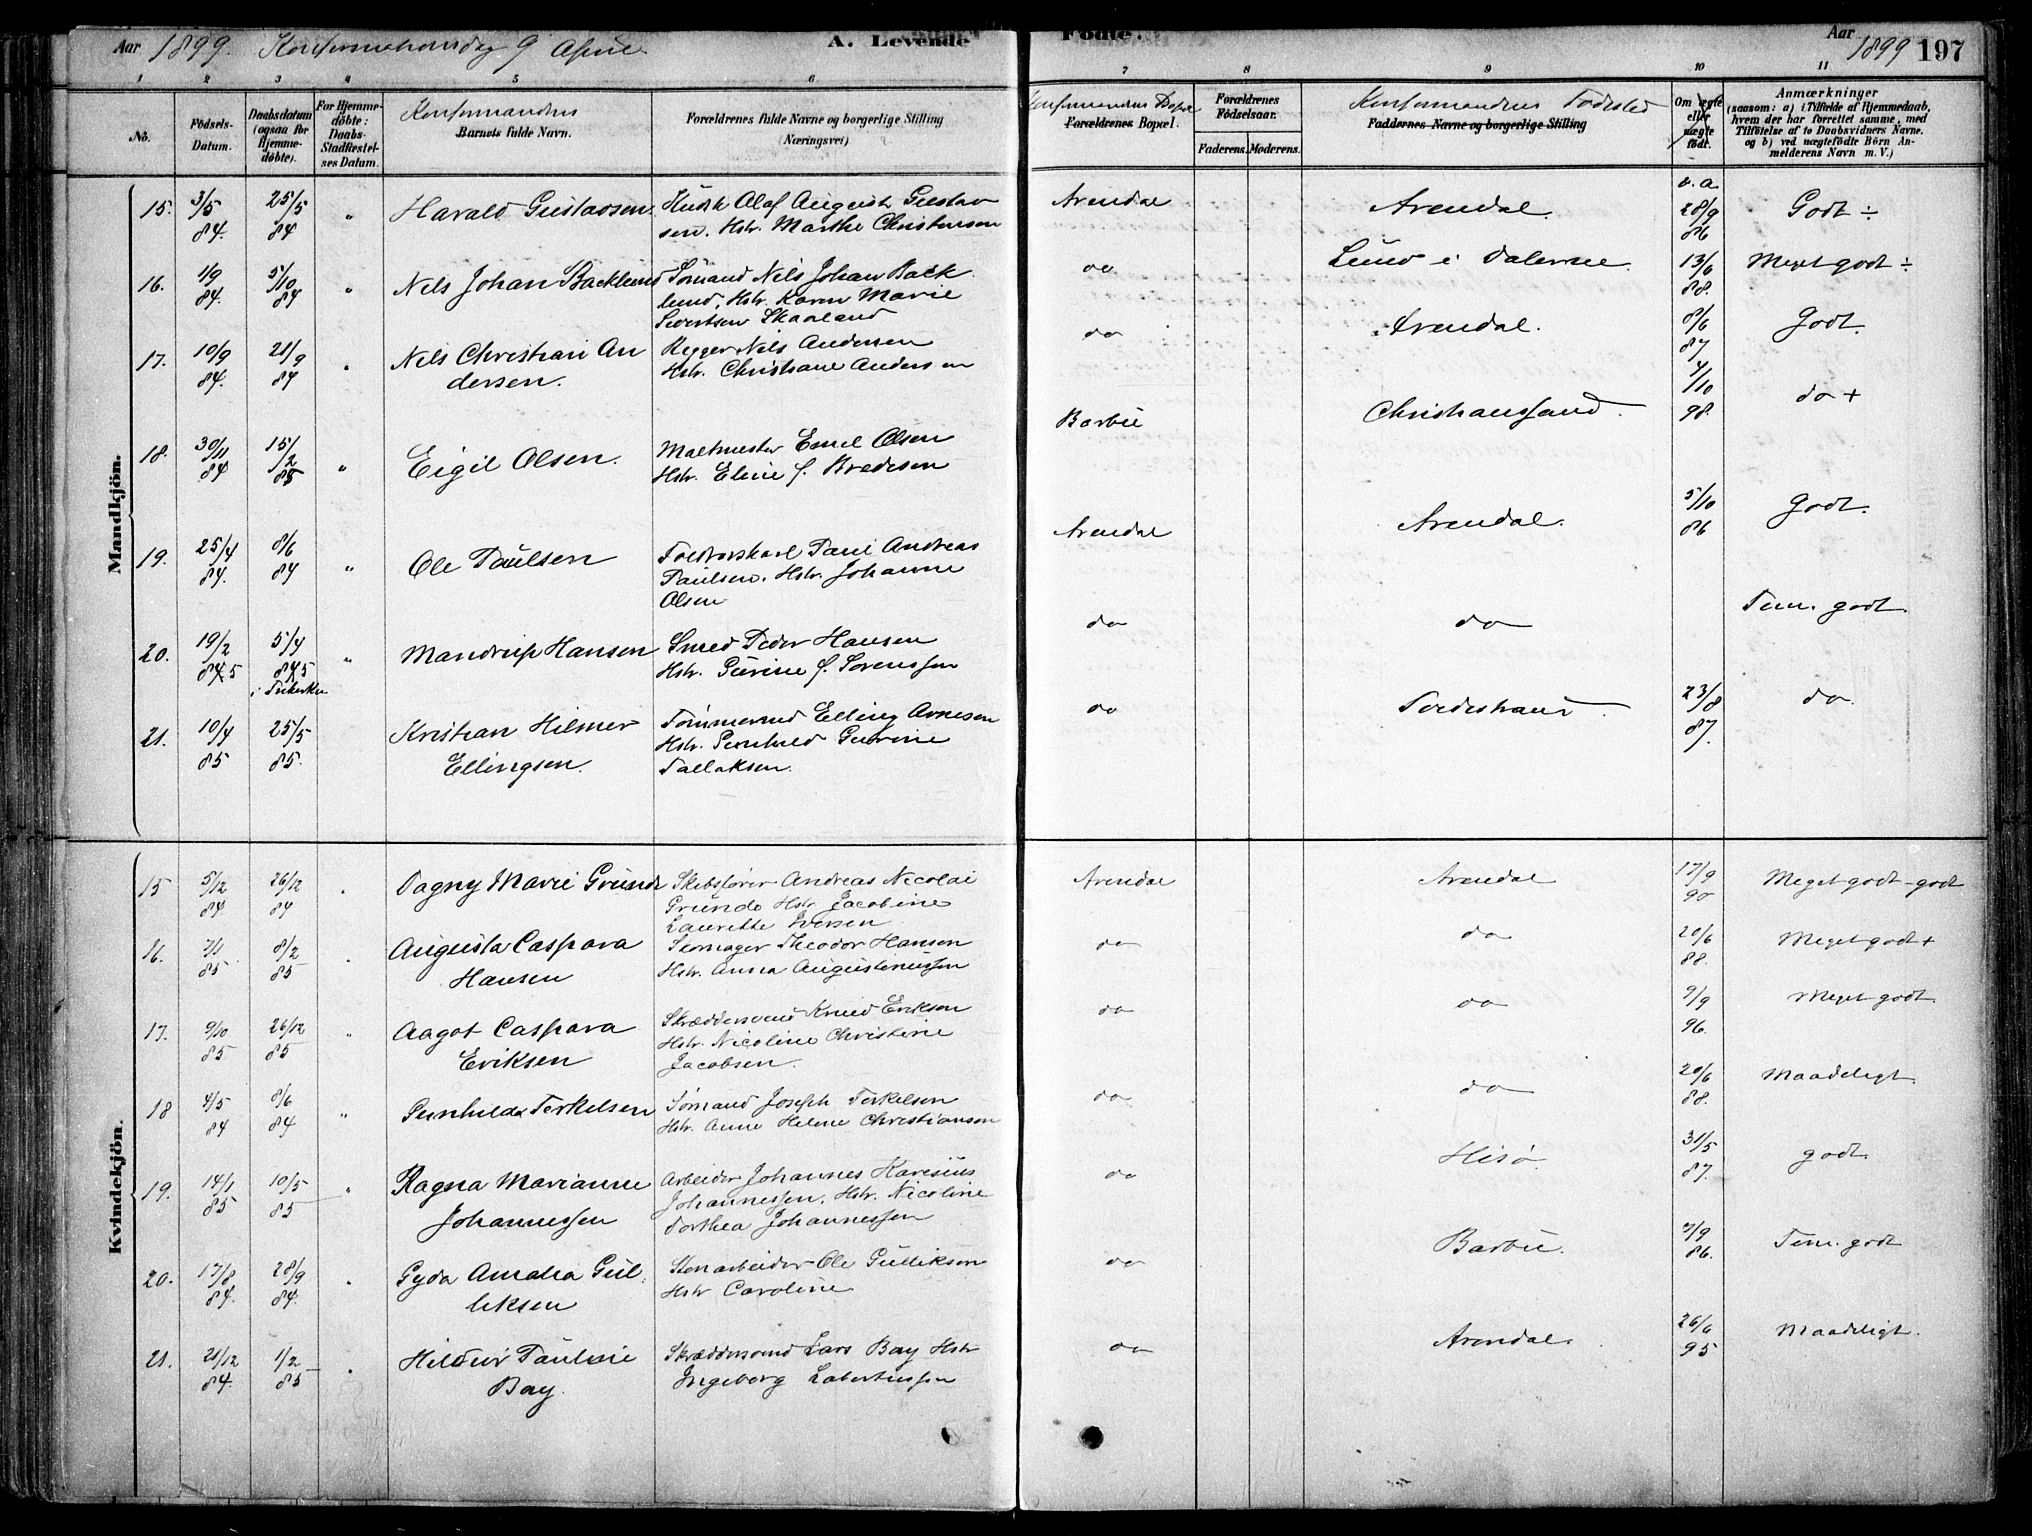 Aar 1899. Konfirmationsdag 9 April
A. Levende
Fødte.
Aar 1899
197
1 2 3 4 5 6 7 8 9 10 11
No.
Fødsels-
Datum.
Daabsdatum
(ogsaa for
Hjemme-
døbte).
For Hjemme-
døbte:
Daabs-
Stadfæstel-
ses Datum.
Konfirmandens
Barnets fulde Navn.
Forældrenes fulde Navne og borgerlige Stilling
(Næringsvei)
Konfirmandens Bopæl
Forældrenes Bopæl.
Forældrenes
Fødselsaar.
Faderens. Moderens.
Konfirmandens Fødested
Faddernes Navne og borgerlige Stilling
Om ægte
eller
uægte
født.
Anmærkninger
(saasom: a) i Tilfælde af Hjemmedaab,
hvem der har forrettet samme, med
Tilføielse af to Daabsvidners Navne,
og b) ved uægtefødte Børn An-
melderens Navn m. V.)
Mandkjön.
15. 3/5 84. 25/5 84 " Harald Gustavsen. Kudsk Olaf August Gustav
sen. Hstr. Marthe Christensen
Arendal Arendal. v. a. 28/9 86 Godt ÷
16. 1/9 84. 5/10 84 " Nels Johan Backlund Sømand Nils Johan Back
lund, Hstr. Karen Marie
Sivertsen Skaaland
do Lund i Dalerne. 13/6 88. Meget godt ÷
17. 10/9 84. 21/9 84 " Nils Christian An
dersen.
Rigger Nils Andersen
Hstr. Christiane Andersen
do Arendal. 8/6 87 Godt.
18. 30/11 84 15/2 85 " Eigil Olsen. Maltmester Emil Olsen
Hstr. Eline f. Bredesen
Barbu Christianssand. 4/10 98. do +
19. 25/4 84. 8/6 84 " Ole Paulsen Toldvæskarl Paul Andreas
Paulsen. Hstr. Johanne
Olsen
Arendal Arendal. 5/10 86 Godt.
20. 19/2 845 5/4 845 " Mandrup Hansen Smed Peder Hansen
i Frikirken
Hstr. Gurine f. Sørenssen
do do Tem. godt.
21. 10/4 85 25/5 85. Kristian Hilmer
Ellingsen.
Tømmermd Elling Arnesen
Hstr. Gunhild Gurine
Tallaksen.
do 23/8 87. do.
Kvindekjön.
15 5/12 84 26/12 84 " Dagny Marie Gründe Skibsfører Andreas Nicolai
Gründe Hstr. Jacobine
Laurette Iversen
Arendal Arendal 17/9 90 Meget godt - godt
16. 7/1 85 8/2 85 . Augusta Caspara
Hansen
Skomager Theodor Hansen
Hstr. Anna Augustinussen
do do 20/6 88. Meget godt +
17. 9/10 85 26/12 85 " Aagot Caspara
Eriksen
Skræddersvend Knud Eriksen
Hstr. Nicoline Christine
Jacobsen.
do do 7/9 96. Meget godt.
18 4/5 84 8/6 84 " Gunhilda Terkelsen Sømand Joseph Terkelsen
Hstr. Anne Helene Christiansen
do do 20/6 88. Maadeligt.
19. 14/1 85 10/5 85 " Ragna Marianne
Johannessen
Arbeider Johannes Karesius
Johannessen. Hstr. Nicoline
Dorthea Johannessen
do Hisø. 31/5 87. godt.
20. 17/8 84. 28/9 84. . Gyda Amalia Gul
liksen
Stenarbeider Ole Gulliksen
Hstr Caroline
do Barbu. 7/9 86. Tem. godt
21. 21/12 84. 1/2 85 . Hildur Pauline
Bay.
Skræddersvend Lars Bay Hstr
Ingeborg Lobertussen
do Arendal. 26/6 95 Maadeligt.